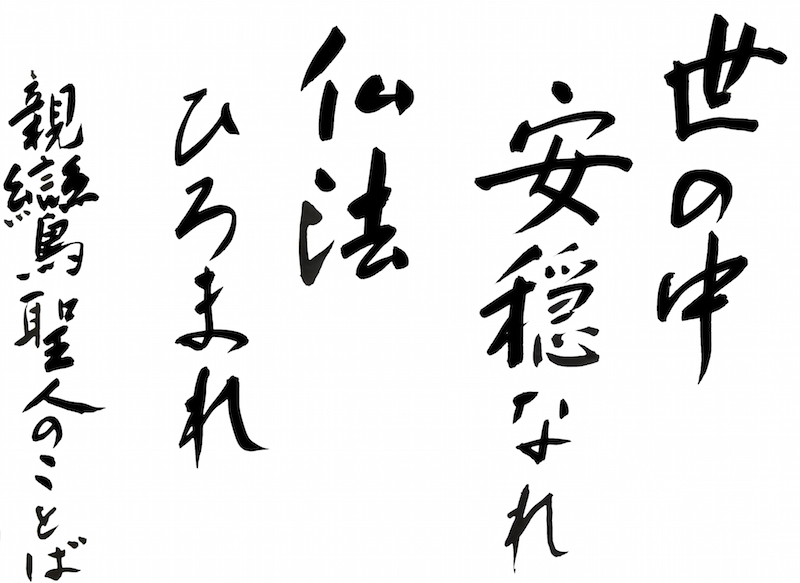 世の中
安穏なれ
仏法
ひろまれ
親鸞聖人のことば